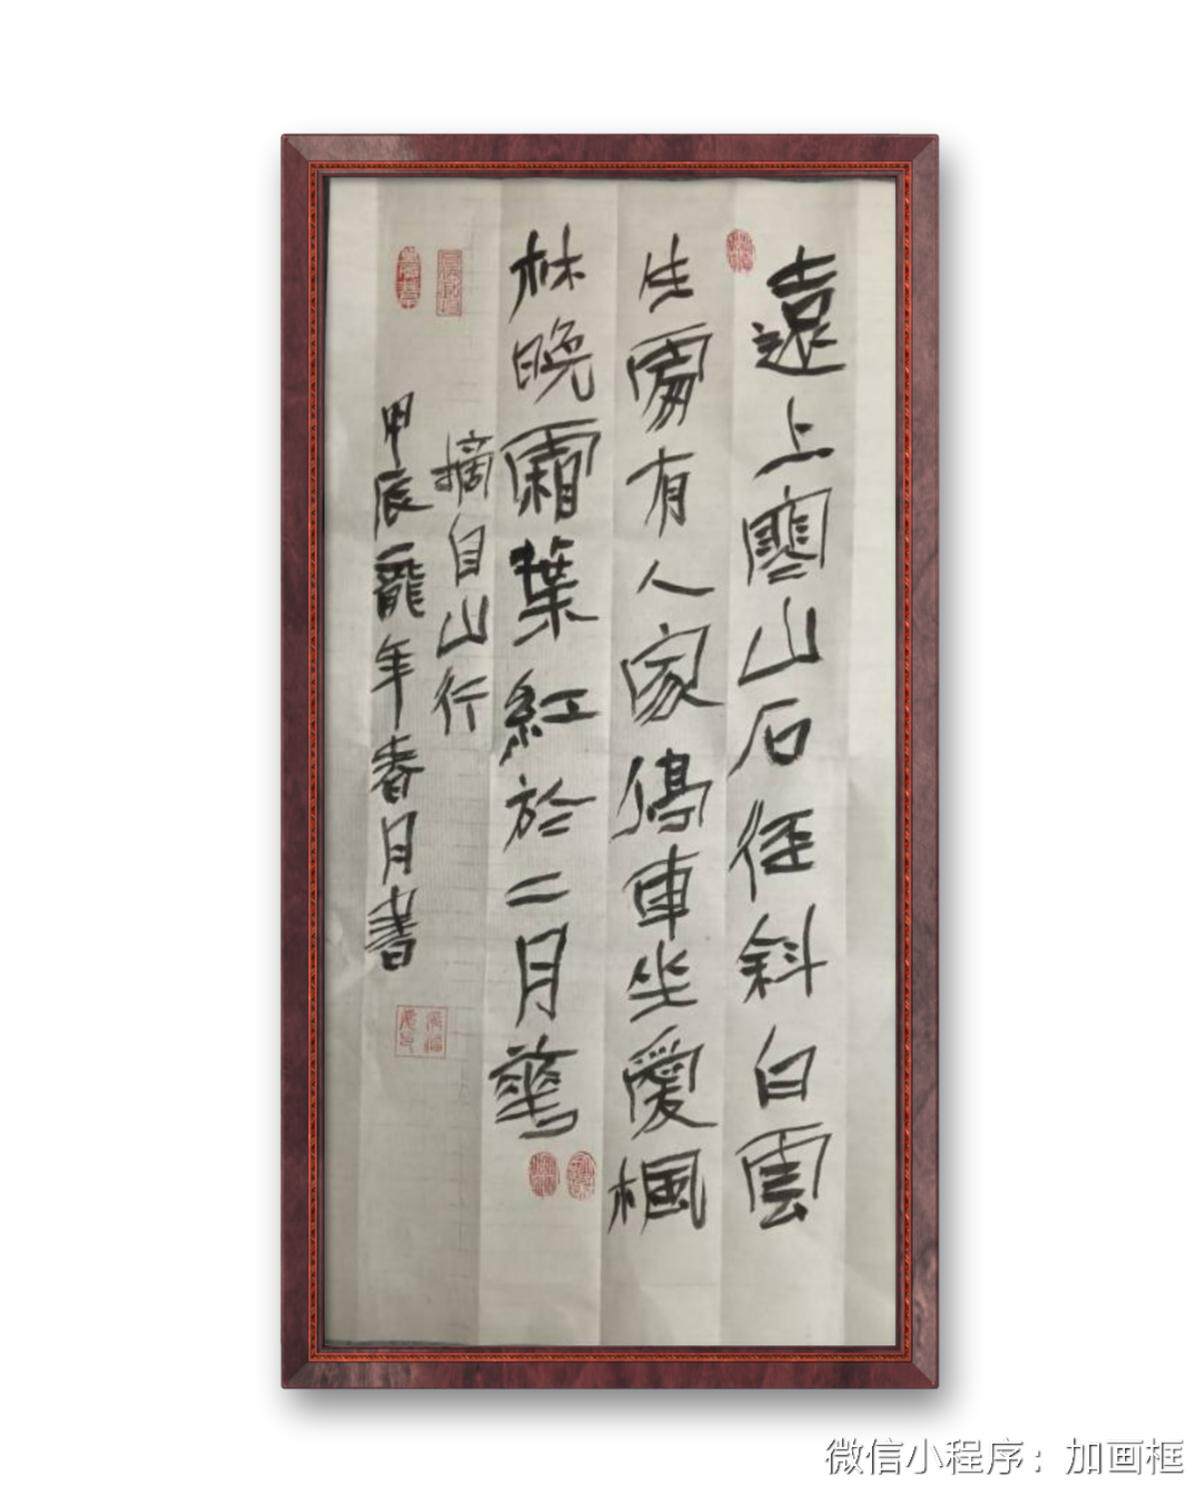 遠上寒山石徑斜白雲
生處有人家停車坐愛楓
林晚霜葉紅於二月華
摘自山行
甲辰龍年春月書
微信小程序：加画框